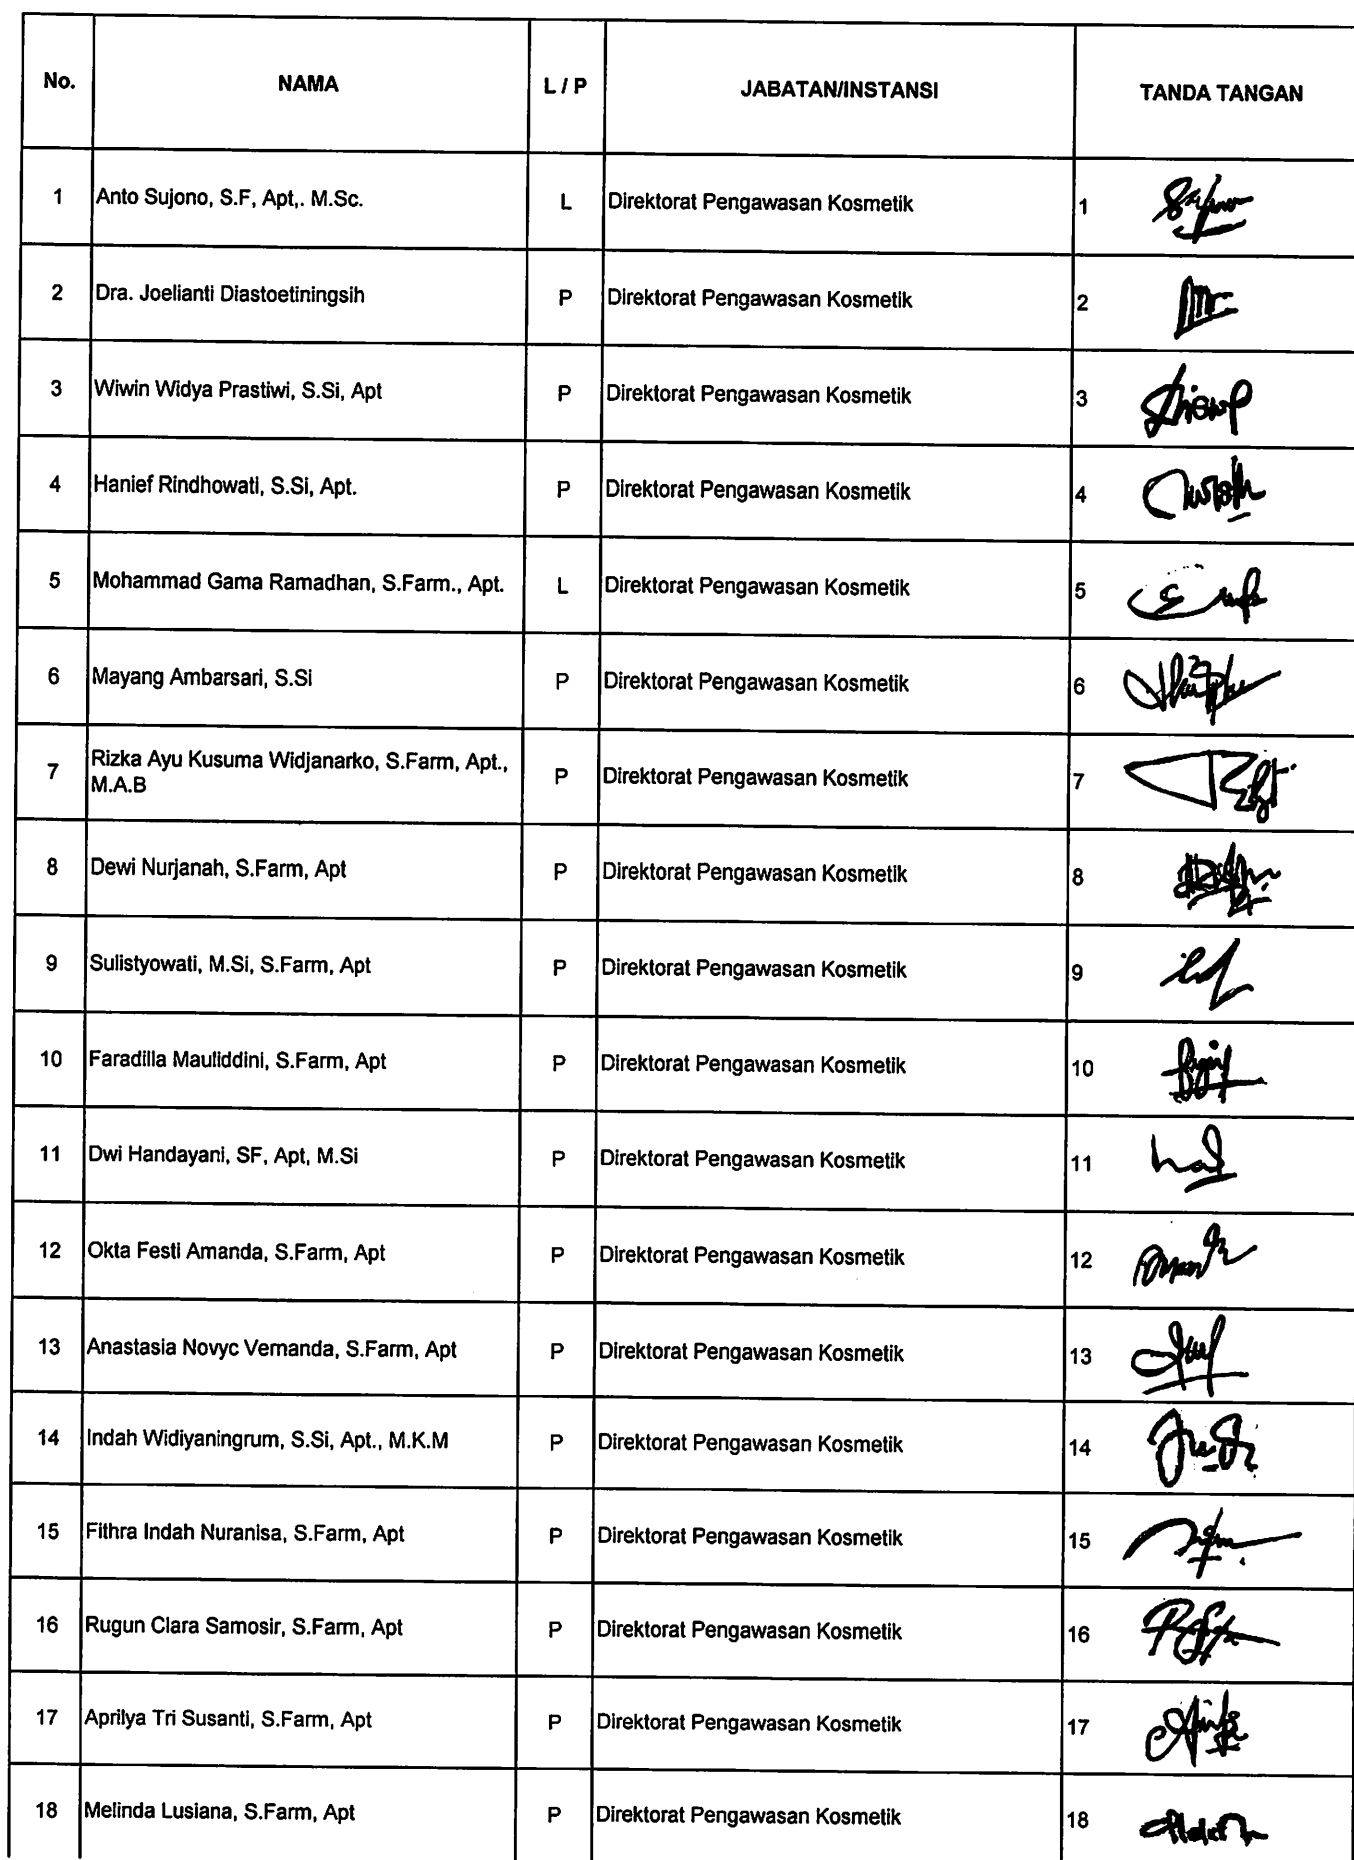 No. NAMA L / P JABATAN/INSTANSI TANDA TANGAN
1 Anto Sujono, S.F, Apt,. M.Sc. L Direktorat Pengawasan Kosmetik 1
2 Dra. Joelianti Diastoetiningsih P Direktorat Pengawasan Kosmetik 2
3 Wiwin Widya Prastiwi, S.Si, Apt P Direktorat Pengawasan Kosmetik 3
4 Hanief Rindhowati, S.Si, Apt. P Direktorat Pengawasan Kosmetik 4
5 Mohammad Gama Ramadhan, S.Farm., Apt. L Direktorat Pengawasan Kosmetik 5
6 Mayang Ambarsari, S.Si P Direktorat Pengawasan Kosmetik 6
7 Rizka Ayu Kusuma Widjanarko, S.Farm, Apt.,
M.A.B P Direktorat Pengawasan Kosmetik 7
8 Dewi Nurjanah, S.Farm, Apt P Direktorat Pengawasan Kosmetik 8
9 Sulistyowati, M.Si, S.Farm, Apt P Direktorat Pengawasan Kosmetik 9
10 Faradilla Mauliddini, S.Farm, Apt P Direktorat Pengawasan Kosmetik 10
11 Dwi Handayani, SF, Apt, M.Si P Direktorat Pengawasan Kosmetik 11
12 Okta Festi Amanda, S.Farm, Apt P Direktorat Pengawasan Kosmetik 12
13 Anastasia Novyc Vernanda, S.Farm, Apt P Direktorat Pengawasan Kosmetik 13
14 Indah Widiyaningrum, S.Si, Apt., M.K.M P Direktorat Pengawasan Kosmetik 14
15 Fithra Indah Nuranisa, S.Farm, Apt P Direktorat Pengawasan Kosmetik 15
16 Rugun Clara Samosir, S.Farm, Apt P Direktorat Pengawasan Kosmetik 16
17 Aprilya Tri Susanti, S.Farm, Apt P Direktorat Pengawasan Kosmetik 17
18 Melinda Lusiana, S.Farm, Apt P Direktorat Pengawasan Kosmetik 18